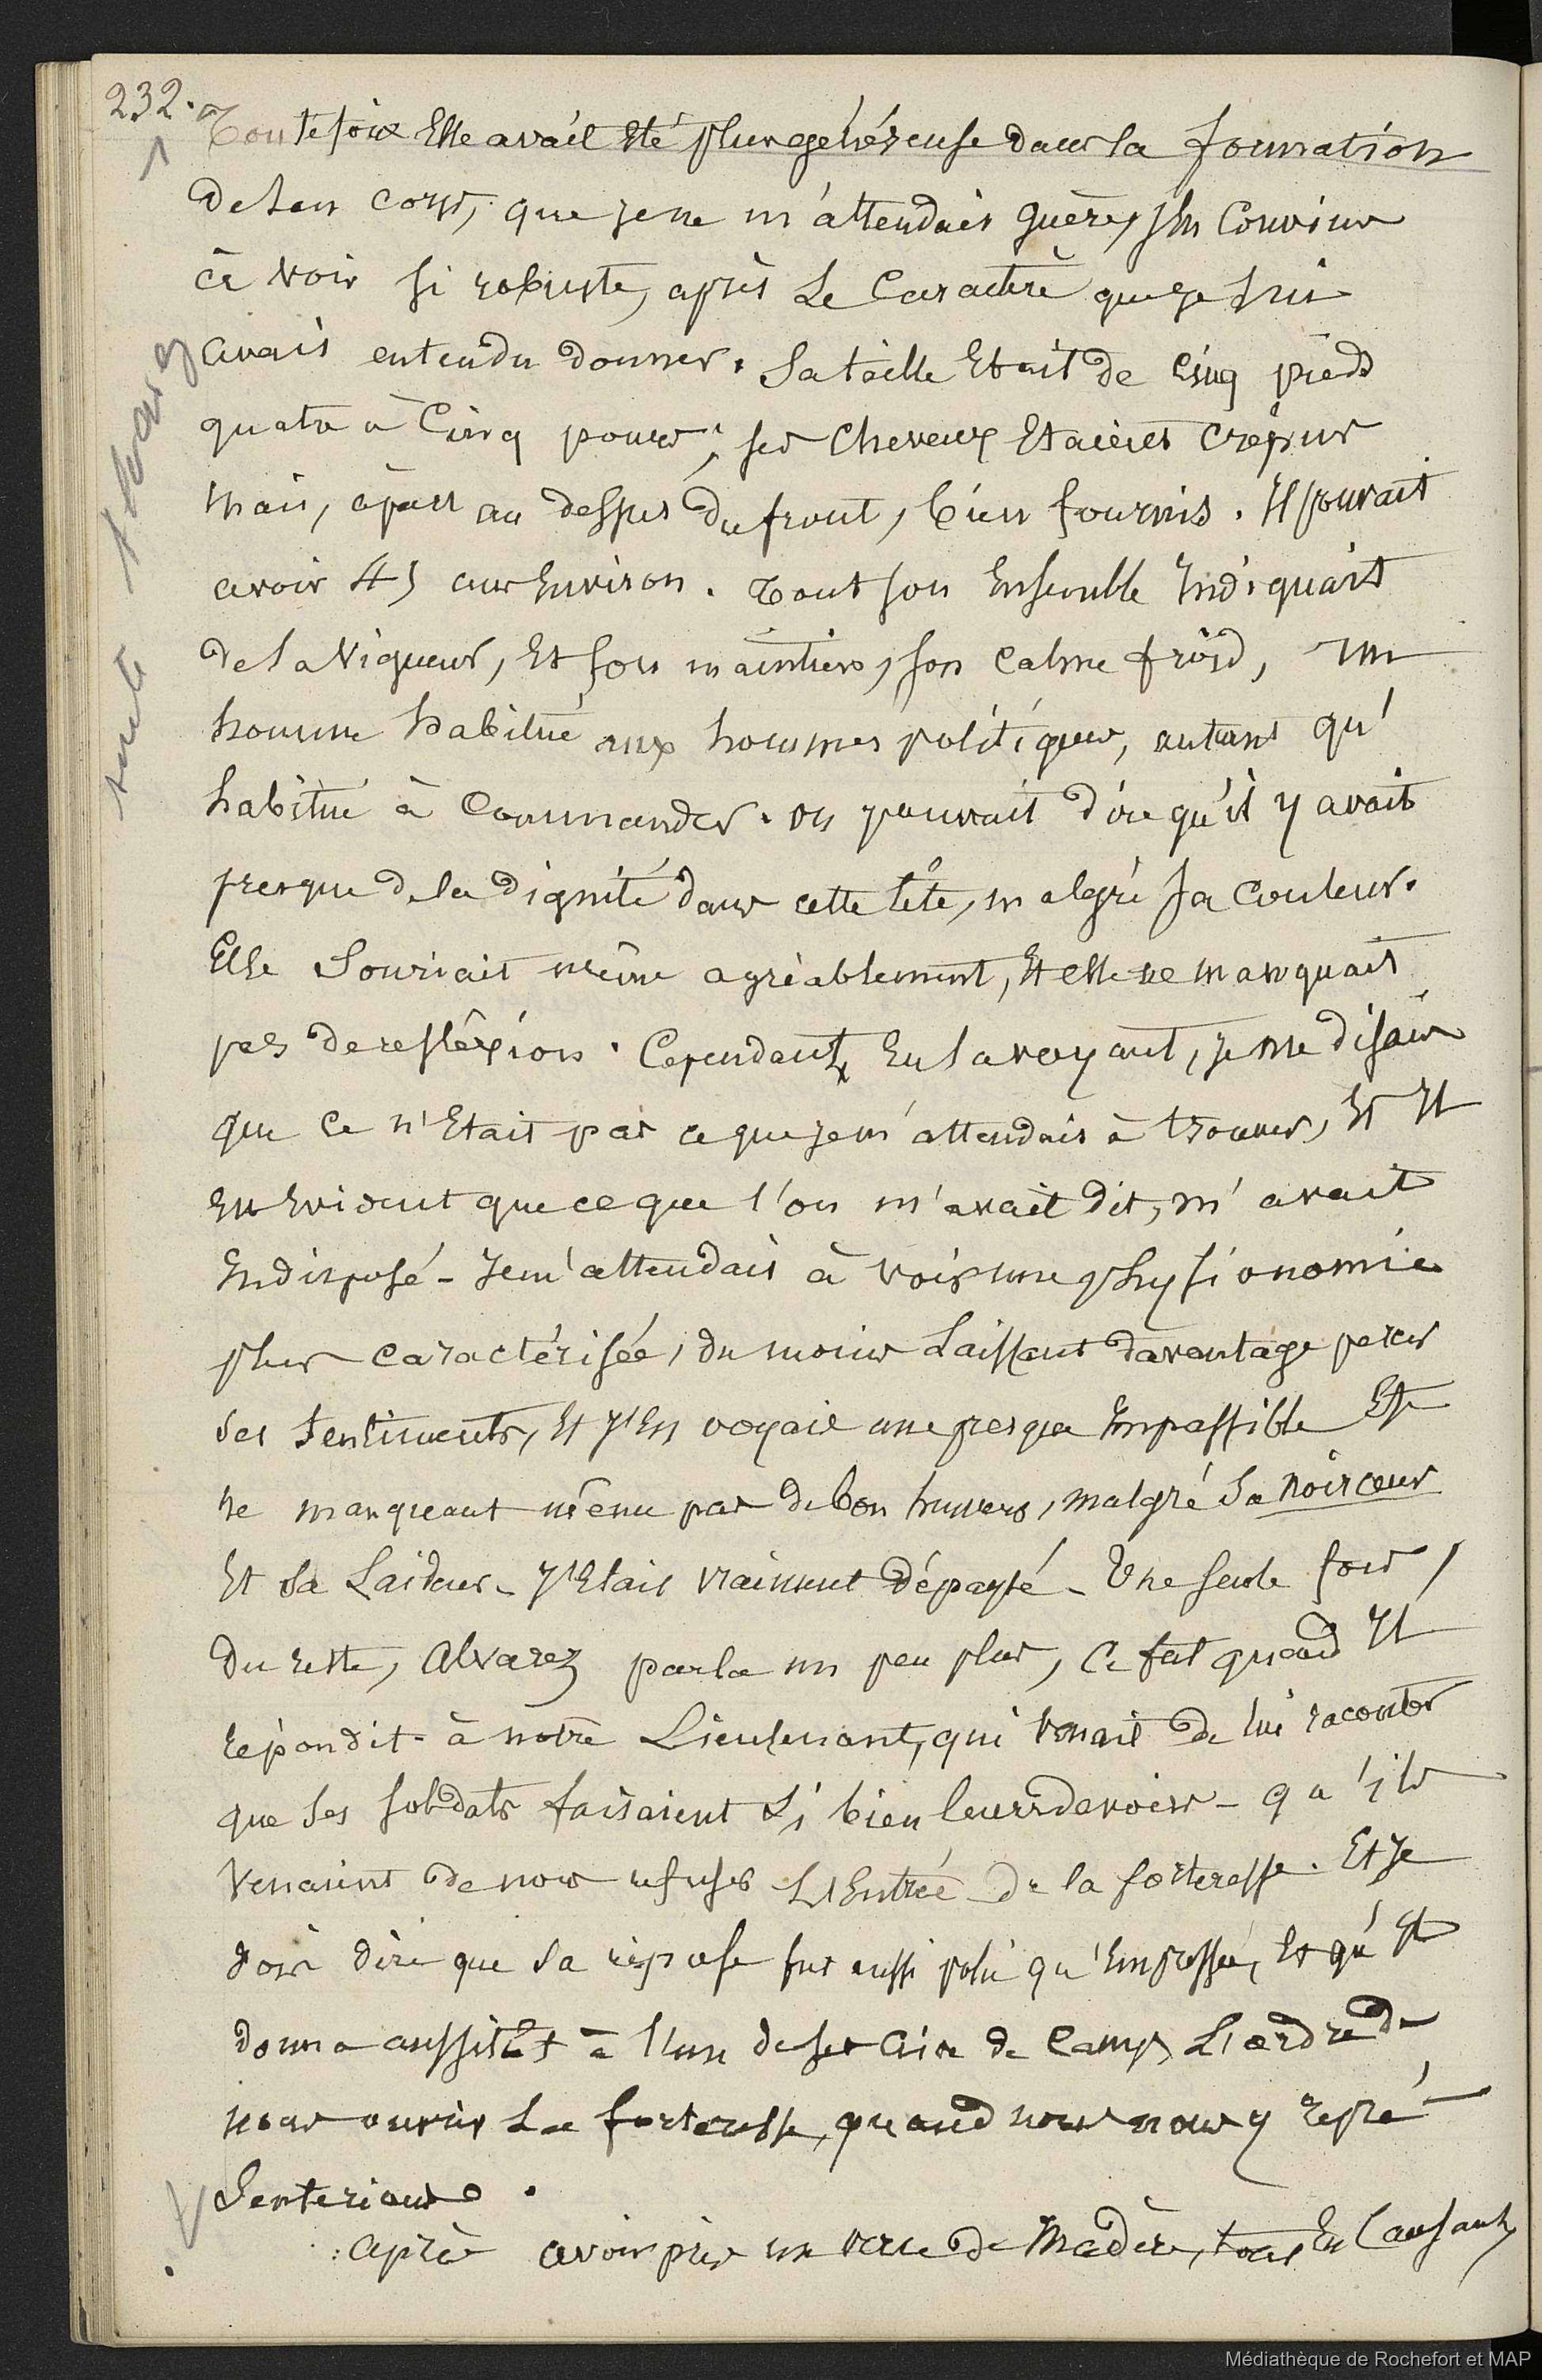 232.
Toutefois Elle avait Eté plus généreuse dans la formation
de son corps, que je ne m'attendais guère, j'en Conviens
à voir si robuste, après le Caractère que je lui
avais entendu donner. Sa taille Etait de cinq pieds
quatre à Cinq pouces; ses Cheveux Etaient crépus
mais, à part au dessus du front, bien fournis. Il pouvait
avoir 45 ans Environ. Tout son Ensemble Indiquait
de la Vigueur, Et son maintien, son calme froid, un
homme habitué aux hommes politiques, autant qu'
habitué à Commander. on pouvait dire qu'il y avait
presque de la Dignité dans cette tête, malgré sa Couleur.
Elle Souriait même agréablement, Et elle ne manquait
pas de refléxion. Cependant, En la voyant, je me disais
que Ce n'Etait pas ce que je m'attendais à trouver, Et Il
Est Evident que ce que l'on m'avait dit, m'avait
Indisposé - Je m'attendais à voir une physionomie
plus caractérisée, du moins Laissant davantage percer
ses Sentiments, Et J'En voyais une presque Impassible Et
ne manquant même pas de bon humeur, malgré Sa noirceur
Et Sa Laideur - J'Etais vraiment Dépaysé - Une seule fois,
du reste, Alvarez parla un peu plus, Ce fut quand Il
répondit à notre Lieutenant, qui venait de lui raconter
que Ses Soldats faisaient Si bien leurs devoirs - qu'ils
Venaient de nous refuser L'Entrée de la forteresse. Et Je
dois dire que Sa réponse fut aussi polie qu'Empressée, Et qu'Il
donna aussitôt à l'un de ses Aides de Camp, L'ordre de
nous ouvrir La forteresse, quand nous nous y repré-
Senterions.
Après avoir pris un verre de Madère, tout En Causant,
suite Alvarez
Médiathèque de Rochefort et MAP